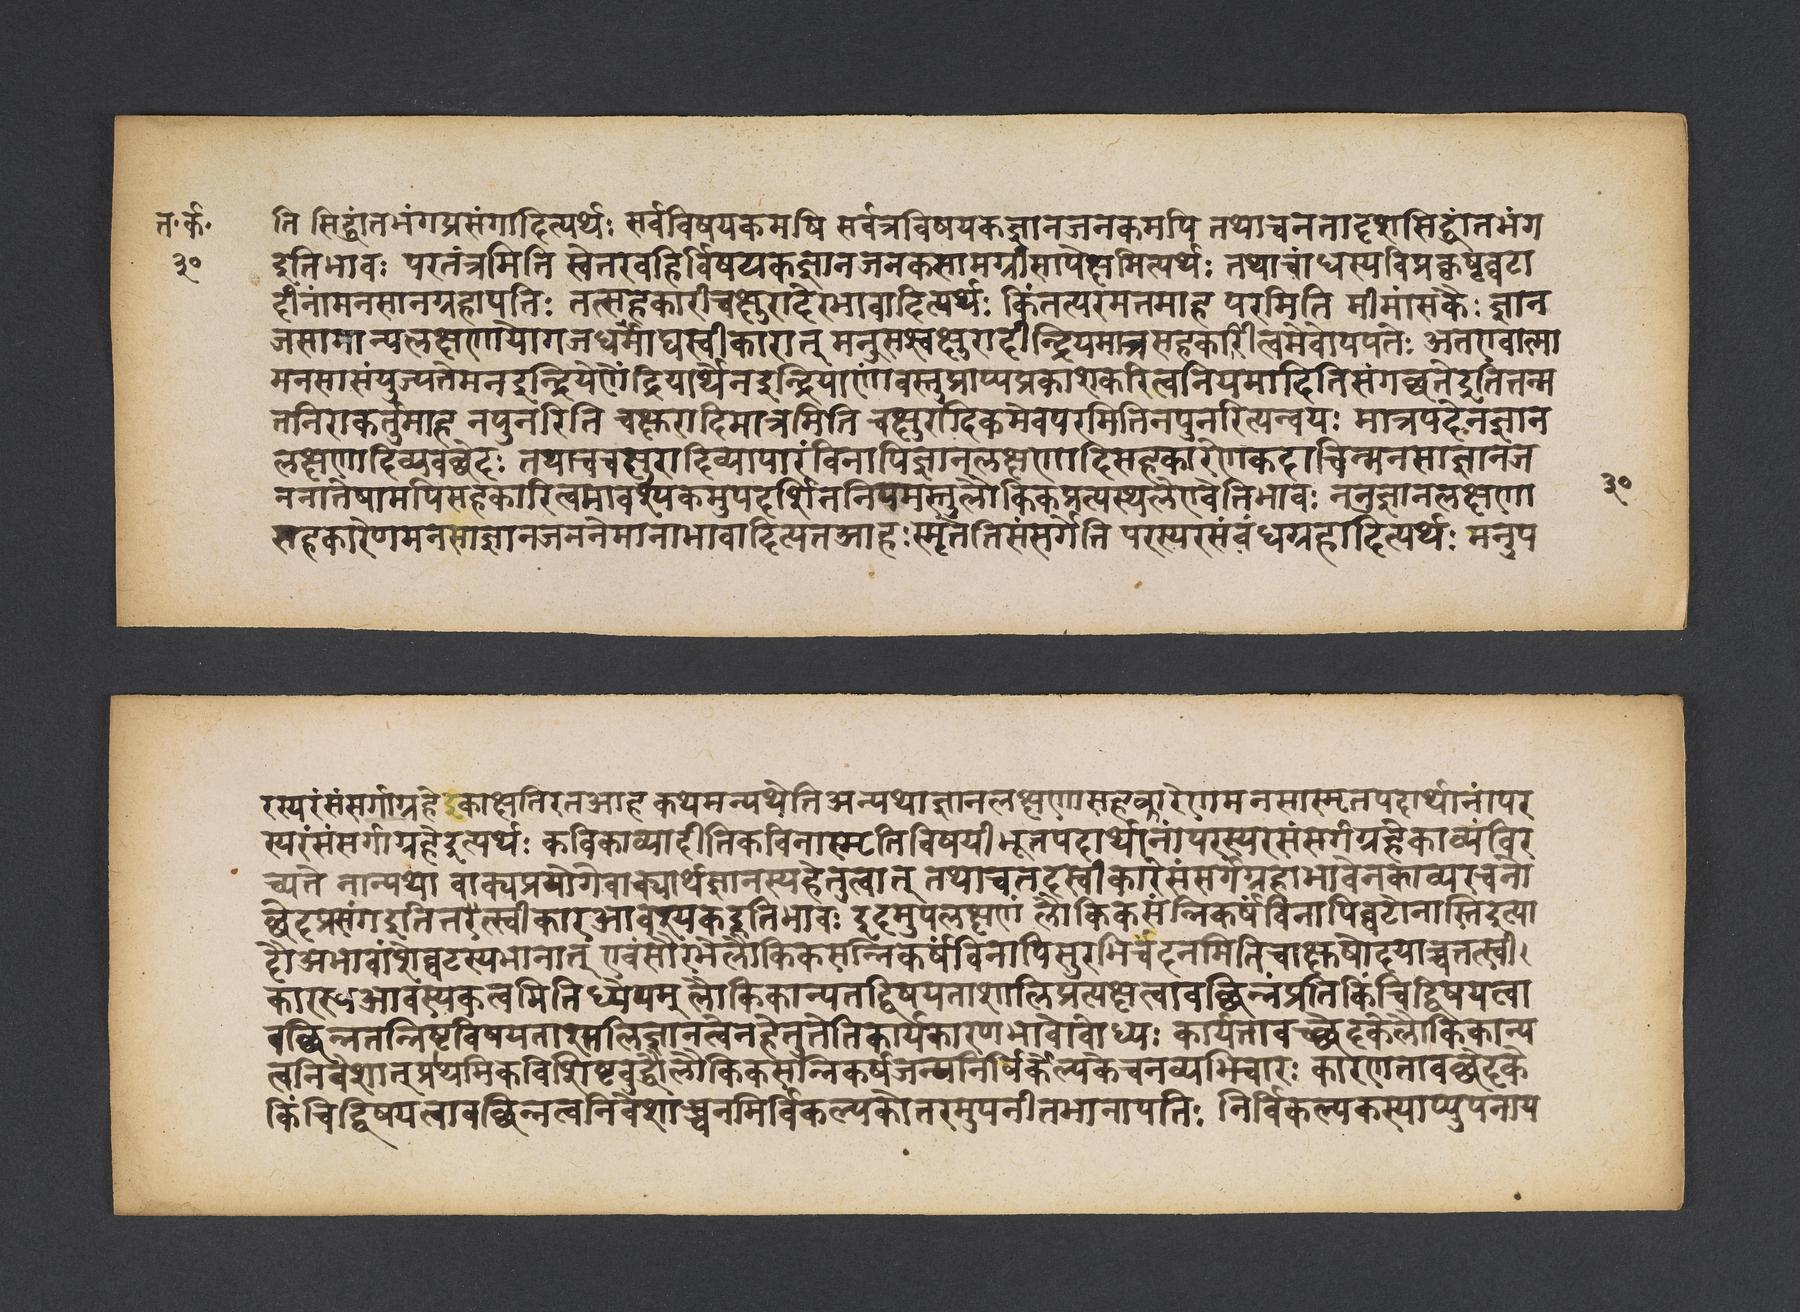 त॰र्क॰
३०
ति सिद्धांतभंगप्रसंगादित्यर्थः सर्वविषयकमषि सर्वत्रविषयकज्ञानजनकमपि तथाचनतादृशसिद्धांतभंग
इतिभावः परतंत्रमिति स्वेतरवहिर्विषयकज्ञानजनकसामग्रीसापेक्षमित्यर्थः तथाचांधस्यविप्रकृष्टघटा
दीनांमनसानग्रहापतिः तत्सहकारीचक्षुरादेरभावादित्यर्थः किंतत्परमतमाह परमिति मीमांसकैः ज्ञान
जसामान्यलक्षणायोगजधर्माद्यस्वीकारात् मनुसश्चक्षुरादीन्द्रियमात्रसहकारित्वमेवोपपतेः अतएवात्मा
मनसासंयुज्यतेमनइन्द्रियेणेंद्रियार्थेनइन्द्रियाणांवस्तुप्राप्यप्रकाशकरित्वनियमादितिसंगच्छतेइतितन्म
तनिराकर्तुमाह नपुनरिति चक्षुरादिमात्रमिति चक्षुरादिकमेवपरमितिनपुनरित्यन्वयः मात्रपदेनज्ञान
लक्षणादिव्यवच्छेदः तथाचचक्षुरादिव्यापारंविनापिज्ञानलक्षणादिसहकारेणकदाचिन्मनसाज्ञानज
ननातेषामपिसहकारित्वमावश्यकमुपदर्शितनियमस्तुलौकिकप्रत्यस्थलेएवेतिभावः ननुज्ञानलक्षणा
सहकारेणमनसाज्ञानजननेमानाभावादित्यतआहःस्मृतेतिसंसर्गेति परस्परसंबंधग्रहादित्यर्थः मनुप
३०
रस्परंसंसर्गाग्रहेइकाक्षतिरतआह कथमन्यथेतिअन्यथाज्ञानलक्षणासहकारेणमनसास्मृतपदार्थानांपर
स्परंसंसर्गाग्रहेइत्यर्थः कविकाव्यादीतिकविनास्मृतिविषयीभूतपदार्थानांपरस्परसंसर्गग्रहेकाव्यंविर
च्यते नान्यथा वाक्यप्रयोगेवाक्यार्थज्ञानस्यहेतुत्वात् तथाचतदस्वीकारेसंसर्गग्रहाभावेनकाव्यरचनो
छेदप्रसंगइतितत्स्वीकारआवश्यकइतिभावः इदमुपलक्षणं लौकिकसंन्निकर्षंविनापिघटोनास्तिइत्या
दौअभावांशेघटस्यभानात् एवंसौरभेलौकिकसन्निकर्षंविनापिसुरभिचंदनमितिचाक्षुषोदयाच्चतत्स्वी।
कारस्यआवंस्यकत्वमिति ध्येयम् लौकिकान्यतद्विषयताशालिप्रत्यक्षत्वावच्छिन्नंप्रतिकिंचिद्विषयत्वा
वच्छिन्नतन्निष्टविषयताशालिज्ञानत्वेनहेतुतेतिकार्यकारणभावोवोध्यः कार्यतावच्छेदकेलौकिकान्य
त्वनिवेशात्प्रथमिकविशिष्टबुद्धौलौकिकसन्निकर्षजन्यनिर्विकल्पकेचनव्यभिचारः कारणतावच्छेदके
किंचिद्विषयत्वावच्छिन्नत्वनिवेशाच्चनमिर्विकल्पकोतरमुपनीतभानापतिः निर्विकल्पकस्याप्युपनाय